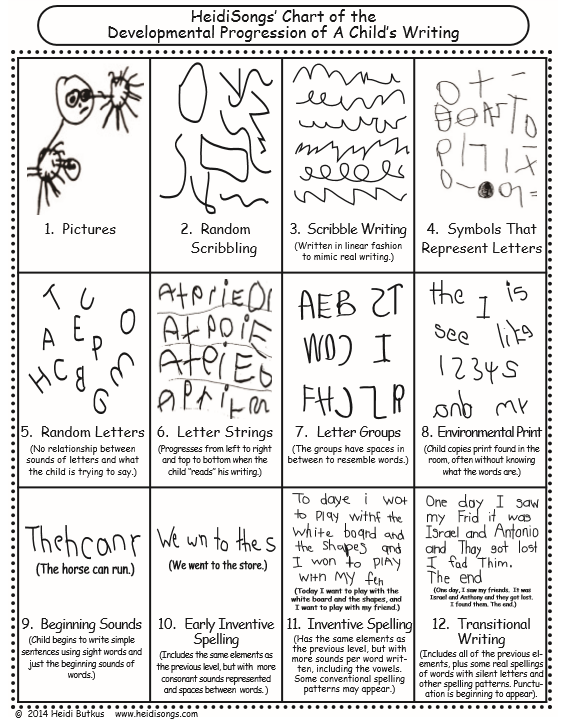 HeidiSongs' Chart of the
Developmental Progression of A Child's Writing
1. Pictures
2. Random
Scribbling
3. Scribble Writing
(Written in linear fashion
to mimic real writing.)
4. Symbols That
Represent Letters
T U
A E P O
H C B G m
5. Random Letters
(No relationship between
sounds of letters and what
the child is trying to say.)
6. Letter Strings
(Progresses from left to right
and top to bottom when the
child "reads" his writing.)
AEB
I
7. Letter Groups
(The groups have spaces in
between to resemble words.)
the I is
see
1 2 3 4 5
8. Environmental Print
(Child copies print found in the
room, often without knowing
what the words are.)
Thehcanr
(The horse can run.)
9. Beginning Sounds
(Child begins to write simple
sentences using sight words and
just the beginning sounds of
words.)
We wn to the s
(We went to the store.)
10. Early Inventive
Spelling
(Includes the same elements as
the previous level, but with more
consonant sounds represented
and spaces between words. )
To daye i wot
to play withf the
white board and
the shapes and
I won to PLAY
with MY feh
(Today I want to play with the
white board and the shapes, and
I want to play with my friend.)
11. Inventive Spelling
(Has the same elements as
the previous level, but with
more sounds per word writ-
ten, including the vowels.
Some conventional spelling
patterns may appear.)
One day I saw
my Frid it was
Israel and Antonio
and Thay got lost
I fad Thim.
The end
(One day, I saw my friends. It was
Israel and Anthony and they got lost.
I found them. The end.)
12. Transitional
Writing
(Includes all of the previous el-
ements, plus some real spellings
of words with silent letters and
other spelling patterns. Punctu-
ation is beginning to appear).
© 2014 Heidi Butkus www.heidisongs.com